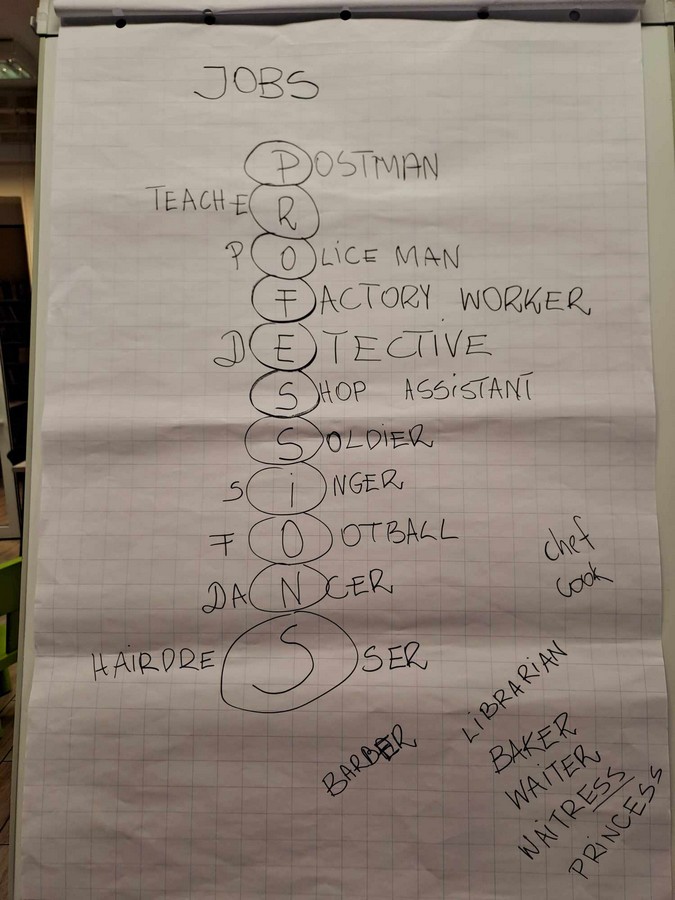 JOBS
POSTMAN
TEACHER
POLiCE MAN
FACTORY WORKER
DETECTIVE
SHOP ASSiSTANT
SOLDiER
SiNGER
FOOTBALL
DANCER
HAiRDRESSER
chef
cook
LiBRARiAN
BARBER
BAKER
WAiTER
WAiTRESS
PRiNCESS